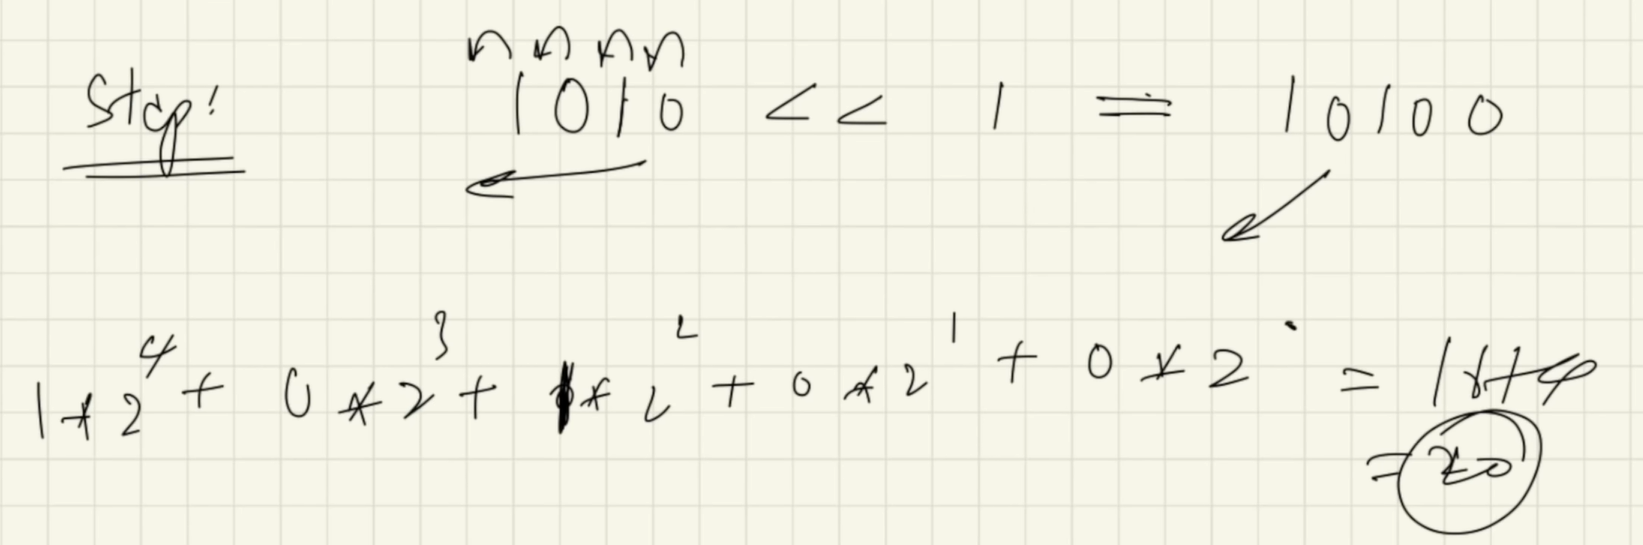 Step: 1010 << 1 = 10100
1*2^4 + 0*2^3 + 1*2^2 + 0*2^1 + 0*2^0 = 16+4
= 20